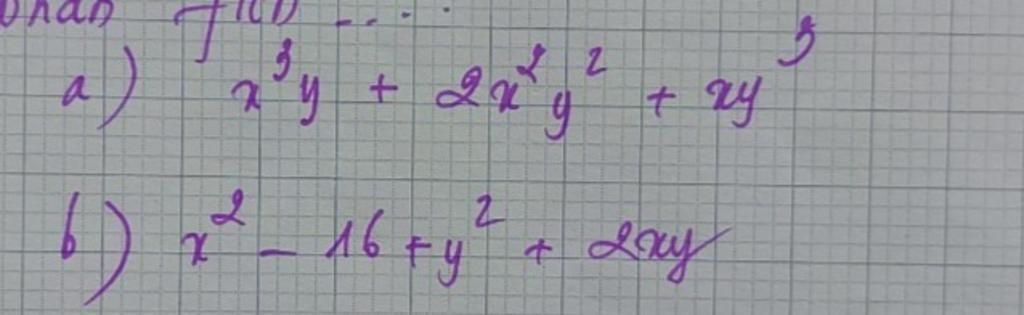 a) x³y + 2x²y² + xy³
b) x² - 16 + y² + 2xy